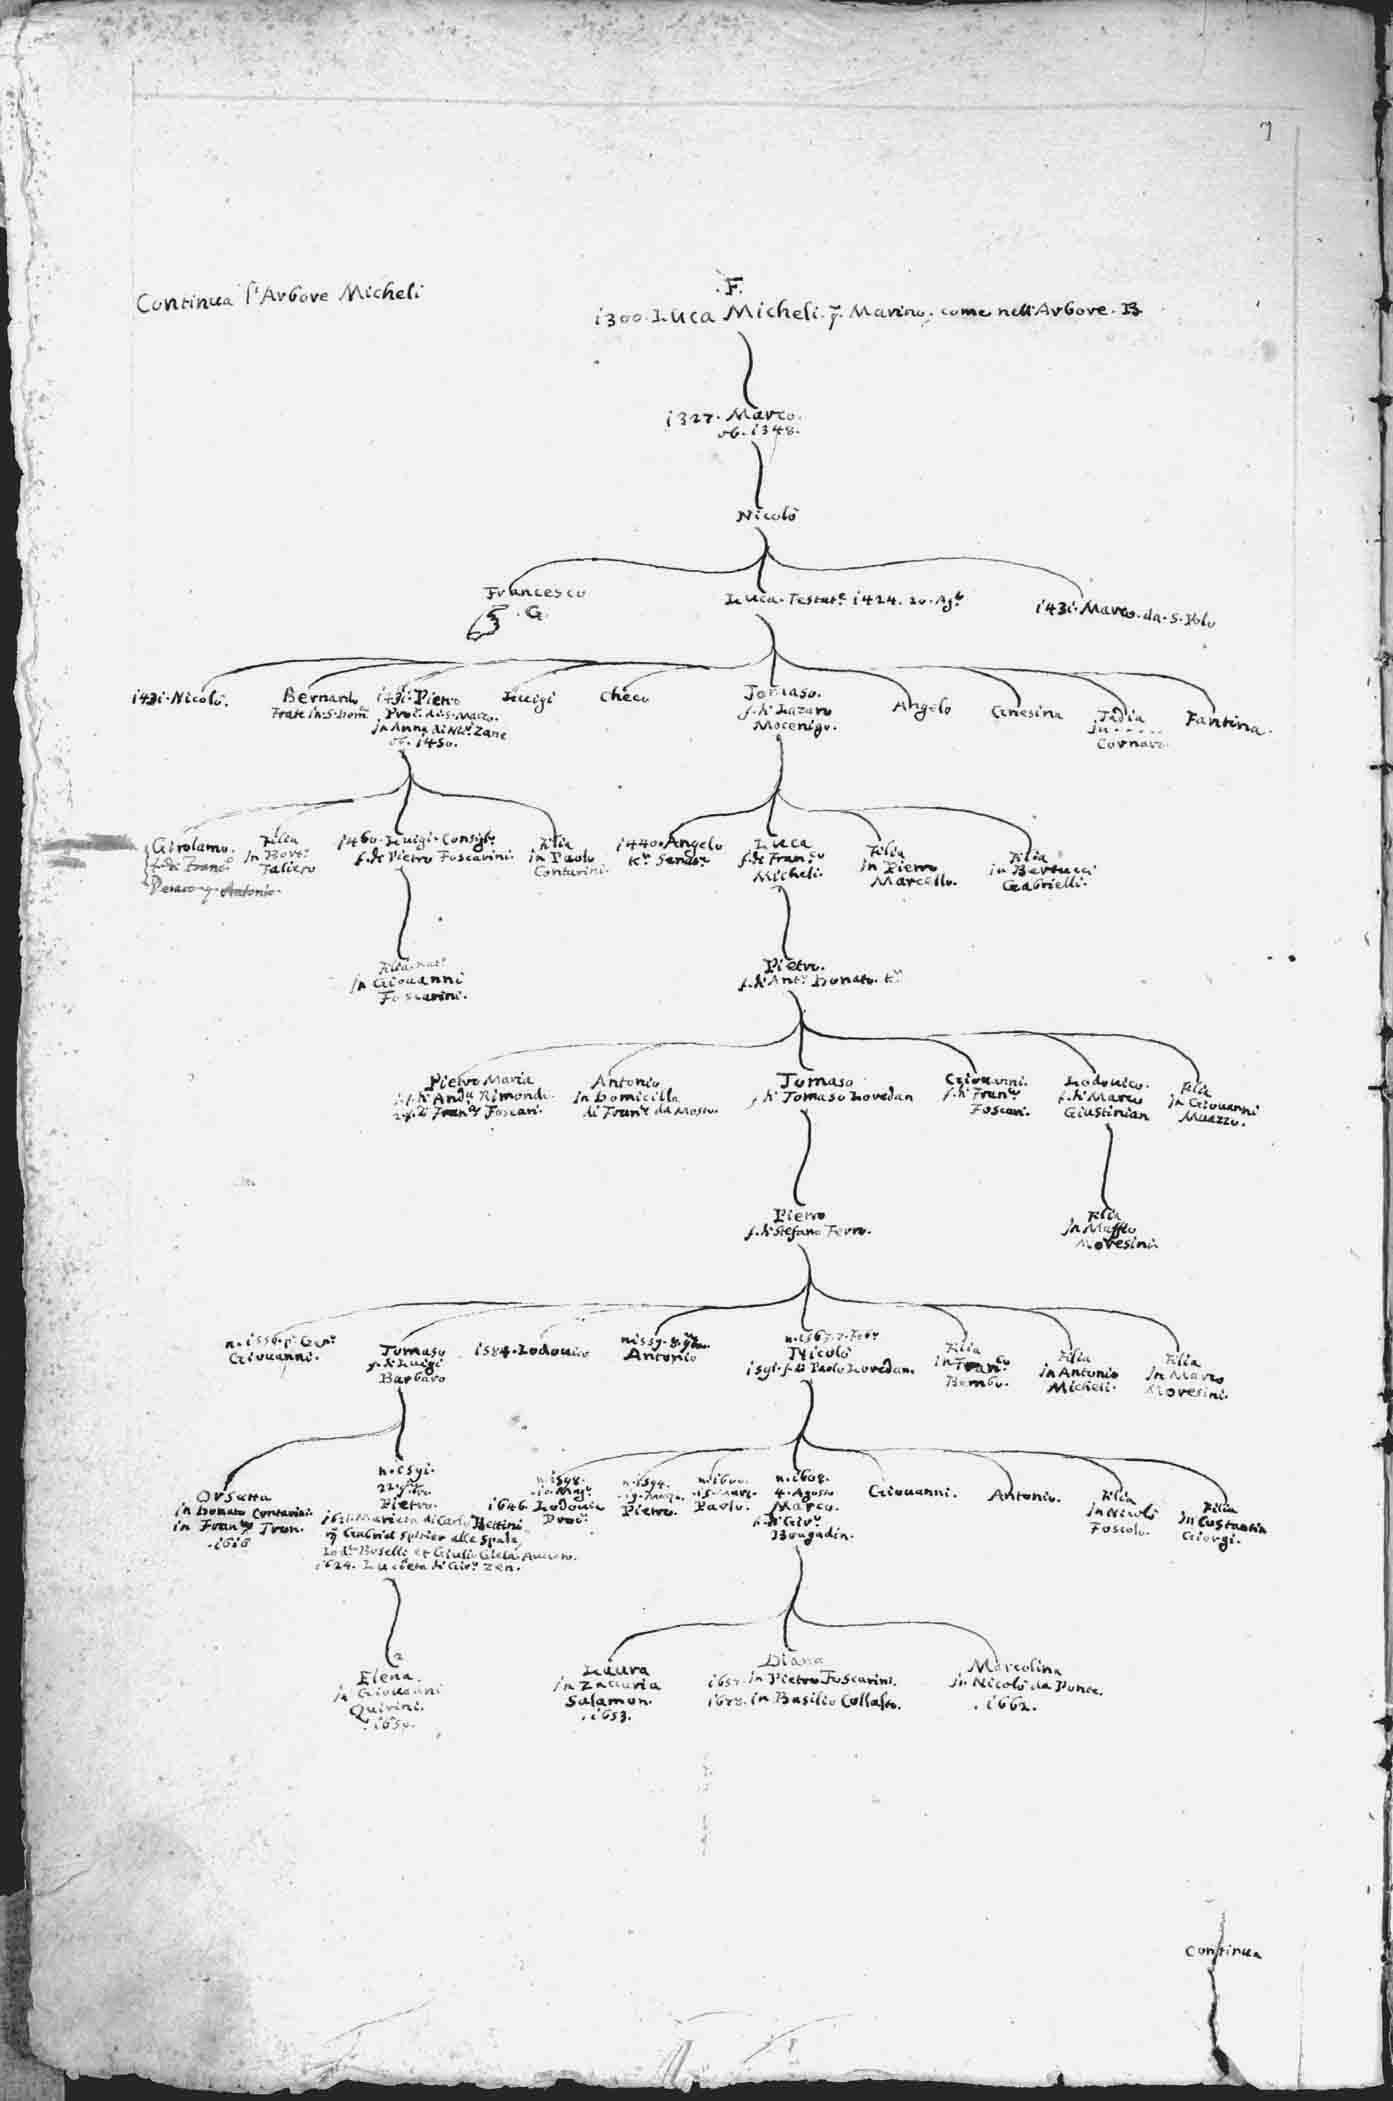 7
Continua l'Arbore Micheli
.F.
1300. Luca Micheli. q. Marino, come nell'Arbore. B
1327. Marco.
ob. 1348.
Nicolò
Francesco
.G.
Luca. Testat.r 1424. 20. Ag.to
1431. Marco. da. S. Polo
1431. Nicolò.
Bernardo
Frate in S. Dom.co
1431. Pietro
Proc. di S. Marco.
in Anna di Nic. Zane
ob. 1450.
Luigi
Checo
Tomaso.
f. di Lazaro
Mocenigo.
Angelo
Cenesina
Tadia
in . . . . .
Cornaro
Fantina.
Girolamo.
f. di Franc.o
q. Antonio.
Filia
in Bort.o
Faliero
1460. Luigi. Consigl.r
f. di Pietro Foscarini.
Filia
in Paolo
Contarini.
1440. Angelo
K.r Senat.r
Luca
f. di Fran.co
Micheli.
Filia
in Pierro
Marcello.
Filia
in Bertucci
Gabrielli.
Filia nat.
in Giouanni
Foscarini.
Pietro.
f. di Ant.o Donato. K.r
Pietro Maria
f. di And.a Rimondo.
2. f. di Fran.co Foscari.
Antonio
in Domicilla
di Fran.co da Mosto.
Tomaso
f. di Tomaso Loredan
Giouanni.
f. di Fran.co
Foscari.
Lodouico.
f. di Marco
Giustinian
Filia
in Giouanni
Muazzo.
Pierro
f. di Stefano Ferro.
Filia
in Maffio
Moresini.
n. 1556. p.o Gen.o
Giouanni.
Tomaso
f. di Luigi
Barbaro
1584. Lodouico
n. 1559. 8. 9bre.
Antonio
n. 1563. 7. Feb.o
Nicolò
1591. f. di Paolo Loredan.
Filia
in Fran.co
Bembo.
Filia
in Antonio
Micheli.
Filia
in Marco
Moresini.
Orsetta
in Donato Contarini.
in Fran.co Tron.
.1616
n. 1591.
Pietro.
Marieta di Carlo Bettini
q. Gabriel Spitier alla Spada,
1624. Lucieta di Gir.o Zen.
n. 1598.
1646. Lodouico
Proc.r
n. 1594.
Pietro.
n. 1600.
Paolo.
n. 1608.
4. Agosto
Marco.
f. di Gir.o
Bragadin.
Giouanni.
Antonio.
Filia
in Nicolò
Foscolo.
Filia
in Costantin
Giorgi.
Elena.
in Giouanni
Quirini.
.1650.
Laura
in Zaccaria
Salamon.
.1653.
Diana
1657. in Pietro Foscarini.
1678. in Basilio Collalto.
Marcolina
in Nicolò da Ponte.
.1662.
Continua